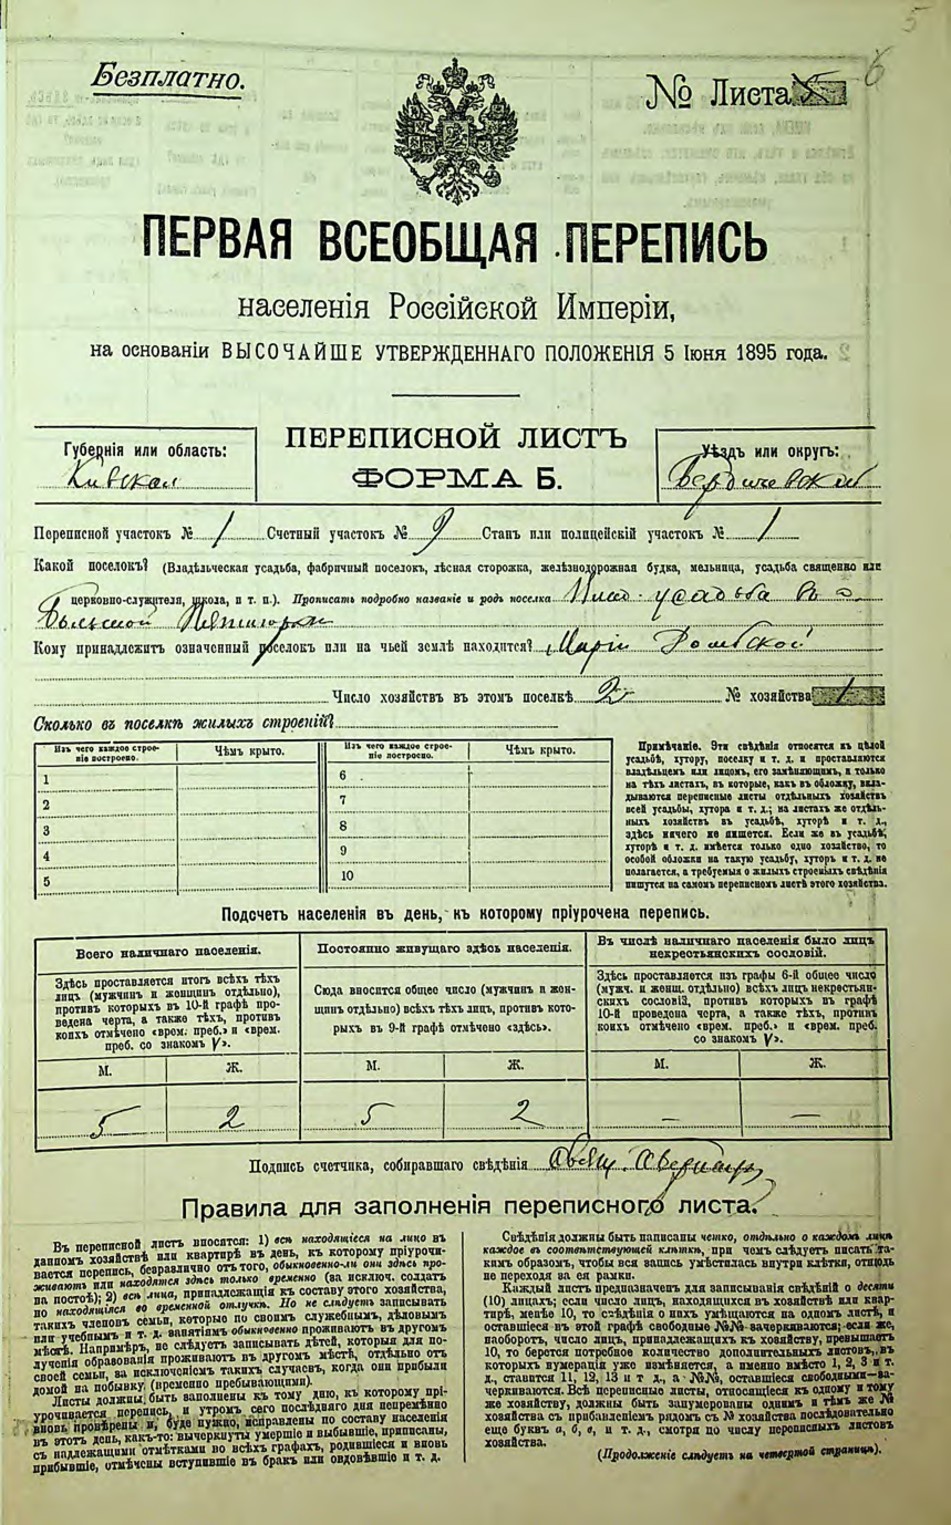 5
6
Безплатно.
№ Листа
ПЕРВАЯ ВСЕОБЩАЯ ПЕРЕПИСЬ
населенія Россійской Имперіи,
на основаніи ВЫСОЧАЙШЕ УТВЕРЖДЕННАГО ПОЛОЖЕНІЯ 5 Іюня 1895 года.
ПЕРЕПИСНОЙ ЛИСТЪ
ФОРМА Б.
Губернія или область:
Кивская
Уѣздъ или округъ:
Бердичевской
Переписной участокъ № 1 Счетный участокъ № 9 Станъ или полицейскій участокъ № 1
Какой поселокъ? (Владѣльческая усадьба, фабричный поселокъ, лѣсная сторожка, желѣзнодорожная будка, мельница, усадьба священно или
церковно-служителя, школа, и т. п.). Прописать подробно названіе и родъ поселка усадьба въ с.
Кому принадлежитъ означенный поселокъ или на чьей землѣ находится? Маріи
Число хозяйствъ въ этомъ поселкѣ 2 № хозяйства 1
Сколько въ поселкѣ жилыхъ строеній?
Изъ чего каждое строе-
ніе построено.
Чѣмъ крыто.
Изъ чего каждое строе-
ніе построено.
Чѣмъ крыто.
1
2
3
4
5
6
7
8
9
10
Примѣчаніе. Эти свѣдѣнія относятся къ цѣлой
усадьбѣ, хутору, поселку и т. д. и проставляются
владѣльцемъ или лицомъ, его замѣняющимъ, и только
на тѣхъ листахъ, въ которые, какъ въ обложку, вкла-
дываются переписные листы отдѣльныхъ хозяйствъ
всей усадьбы, хутора и т. д.; на листахъ же отдѣль-
ныхъ хозяйствъ въ усадьбѣ, хуторѣ и т. д.,
здѣсь ничего не пишется. Если же въ усадьбѣ,
хуторѣ и т. д. имѣется только одно хозяйство, то
особой обложки на такую усадьбу, хуторъ и т. д. не
полагается, а требуемыя о жилыхъ строеніяхъ свѣдѣнія
пишутся на самомъ переписномъ листѣ этого хозяйства.
Подсчетъ населенія въ день, къ которому пріурочена перепись.
Всего наличнаго населенія.
Здѣсь проставляется итогъ всѣхъ тѣхъ
лицъ (мужчинъ и женщинъ отдѣльно),
противъ которыхъ въ 10-й графѣ про-
ведена черта, а также тѣхъ, противъ
коихъ отмѣчено «врем. преб.» и «врем.
преб. со знакомъ V».
Постоянно живущаго здѣсь населенія.
Сюда вносится общее число (мужчинъ и жен-
щинъ отдѣльно) всѣхъ тѣхъ лицъ, противъ кото-
рыхъ въ 9-й графѣ отмѣчено «здѣсь».
Въ числѣ наличнаго населенія было лицъ
некрестьянскихъ сословій.
Здѣсь проставляется изъ графы 6-й общее число
(мужч. и женщ. отдѣльно) всѣхъ лицъ некрестьян-
скихъ сословій, противъ которыхъ въ графѣ
10-й проведена черта, а также тѣхъ, противъ
коихъ отмѣчено «врем. преб.» и «врем. преб.
со знакомъ V».
М. Ж. М. Ж. М. Ж.
5 2 5 2 — —
Подпись счетчика, собиравшаго свѣдѣнія
Правила для заполненія переписного листа.
Въ переписной листъ вносятся: 1) всѣ находящіеся на лицо въ
данномъ хозяйствѣ или квартирѣ въ день, къ которому пріурочи-
вается перепись, безразлично отъ того, обыкновенно-ли они здѣсь про-
живаютъ или находятся здѣсь только временно (за исключ. солдатъ
на постоѣ); 2) всѣ лица, принадлежащія къ составу этого хозяйства,
но находящіяся во временной отлучкѣ. Но не слѣдуетъ записывать
такихъ членовъ семьи, которые по своимъ служебнымъ, дѣловымъ
или учебнымъ и т. д. занятіямъ обыкновенно проживаютъ въ другомъ
мѣстѣ. Напримѣръ, не слѣдуетъ записывать дѣтей, которыя для по-
лученія образованія проживаютъ въ другомъ мѣстѣ, отдѣльно отъ
своей семьи, за исключеніемъ такихъ случаевъ, когда они прибыли
домой на побывку (временно пребывающими).
Листы должны быть заполнены къ тому дню, къ которому прі-
урочивается перепись, и утромъ сего послѣдняго дня непремѣнно
вновь провѣрены и, буде нужно, исправлены по составу населенія
въ этотъ день, какъ-то: вычеркнуты умершіе и выбывшіе, приписаны,
съ надлежащими отмѣтками во всѣхъ графахъ, родившіеся и вновь
прибывшіе, отмѣчены вступившіе въ бракъ или овдовѣвшіе и т. д.
Свѣдѣнія должны быть написаны четко, отдѣльно о каждомъ лицѣ
каждое въ соотвѣтствующей клѣткѣ, при чемъ слѣдуетъ писать та-
кимъ образомъ, чтобы вся запись умѣстилась внутри клѣтки, отнюдь
не переходя за ея рамки.
Каждый листъ предназначенъ для записыванія свѣдѣній о десяти
(10) лицахъ; если число лицъ, находящихся въ хозяйствѣ или квар-
тирѣ, менѣе 10, то свѣдѣнія о нихъ умѣщаются на одномъ листѣ, и
оставшіеся въ этой графѣ свободные №№ вычеркиваются; если же,
наоборотъ, число лицъ, принадлежащихъ къ хозяйству, превышаетъ
10, то берется потребное количество дополнительныхъ листовъ, въ
которыхъ нумерація уже измѣняется, а именно вмѣсто 1, 2, 3 и т.
д., ставится 11, 12, 13 и т. д., а №№, оставшіеся свободными—вы-
черкиваются. Всѣ переписные листы, относящіеся къ одному и тому
же хозяйству, должны быть занумерованы однимъ и тѣмъ же №
хозяйства съ прибавленіемъ рядомъ съ № хозяйства послѣдовательно
еще буквъ а, б, в, и т. д., смотря по числу переписныхъ листовъ
хозяйства.
(Продолженіе слѣдуетъ на четвертой страницѣ).